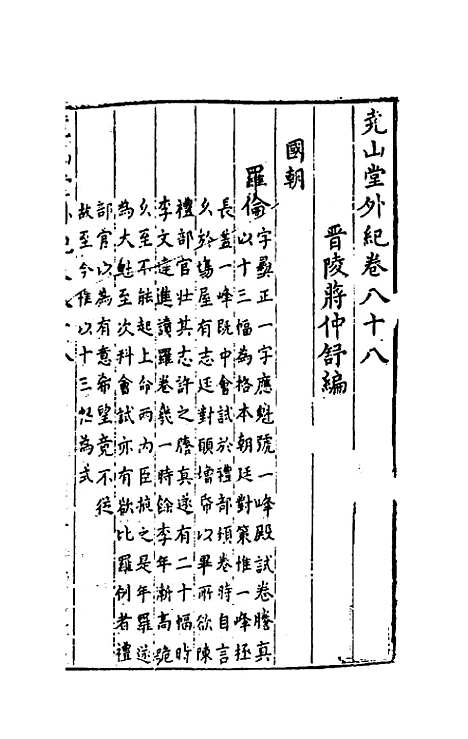 堯山堂外紀卷八十八
晋陵蔣仲舒編
國朝
羅倫字彝正一字應魁號一峰殿試卷謄真
以十三幅為格本朝廷對策惟一峰極
長盖一峰既中會試於禮部領卷時自言
久於場屋有志廷對願增昂以畢所欲陳
禮部官壮其志許之謄真遂有二十幅時
李文達進讀羅卷幾一時餘李年漸高跪
久至不能起上命两內臣掖之是年羅遂
為大魁至次科會試亦有欲比羅例者禮
部官以為有意希望竟不從
故至今惟以十三幅為式